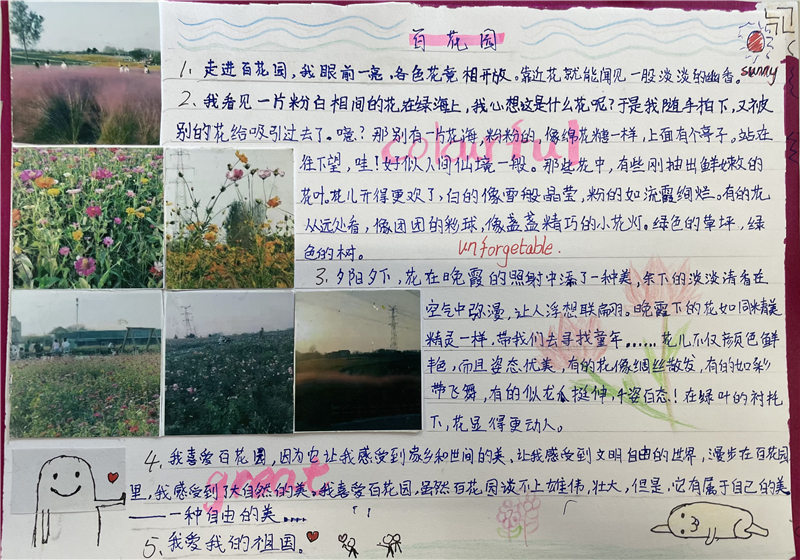 百花园
sunny
1、走进百花园，我眼前一亮。各色花竞相开放。靠近花就能闻见一股淡淡的幽香。
2、我看见一片粉白相间的花在绿海上，我心想这是什么花呢？于是我随手拍下，又被
别的花给吸引过去了。噫？那别有一片花海，粉粉的，像棉花糖一样，上面有个亭子。站在
往下望，哇！好似人间仙境一般。那些花中，有些刚抽出鲜嫩的
colurful
花叶。花儿开得更欢了，白的像雪般晶莹，粉的如流霞绚烂。有的花
从远处看，像团团的彩球，像盏盏精巧的小花灯。绿色的草坪，绿
色的树。
unforgetable.
3、夕阳夕下，花在晚霞的照射中添了一种美，余下的淡淡清香在
空气中弥漫，让人浮想联翩。晚霞下的花如同精美
精灵一样，带我们去寻找童年……花儿不仅颜色鲜
艳，而且姿态优美，有的花像绸丝散发，有的如彩
带飞舞，有的似龙爪挺伸，千姿百态！在绿叶的衬托
下，花显得更动人。
4、我喜爱百花园，因为它让我感受到家乡和世间的美、让我感受到文明自由的世界，漫步在百花园
great
里，我感受到了大自然的美。我喜爱百花园，虽然百花园谈不上雄伟，壮大，但是，它有属于自己的美
——一种自由的美……
5、我爱我的祖国。